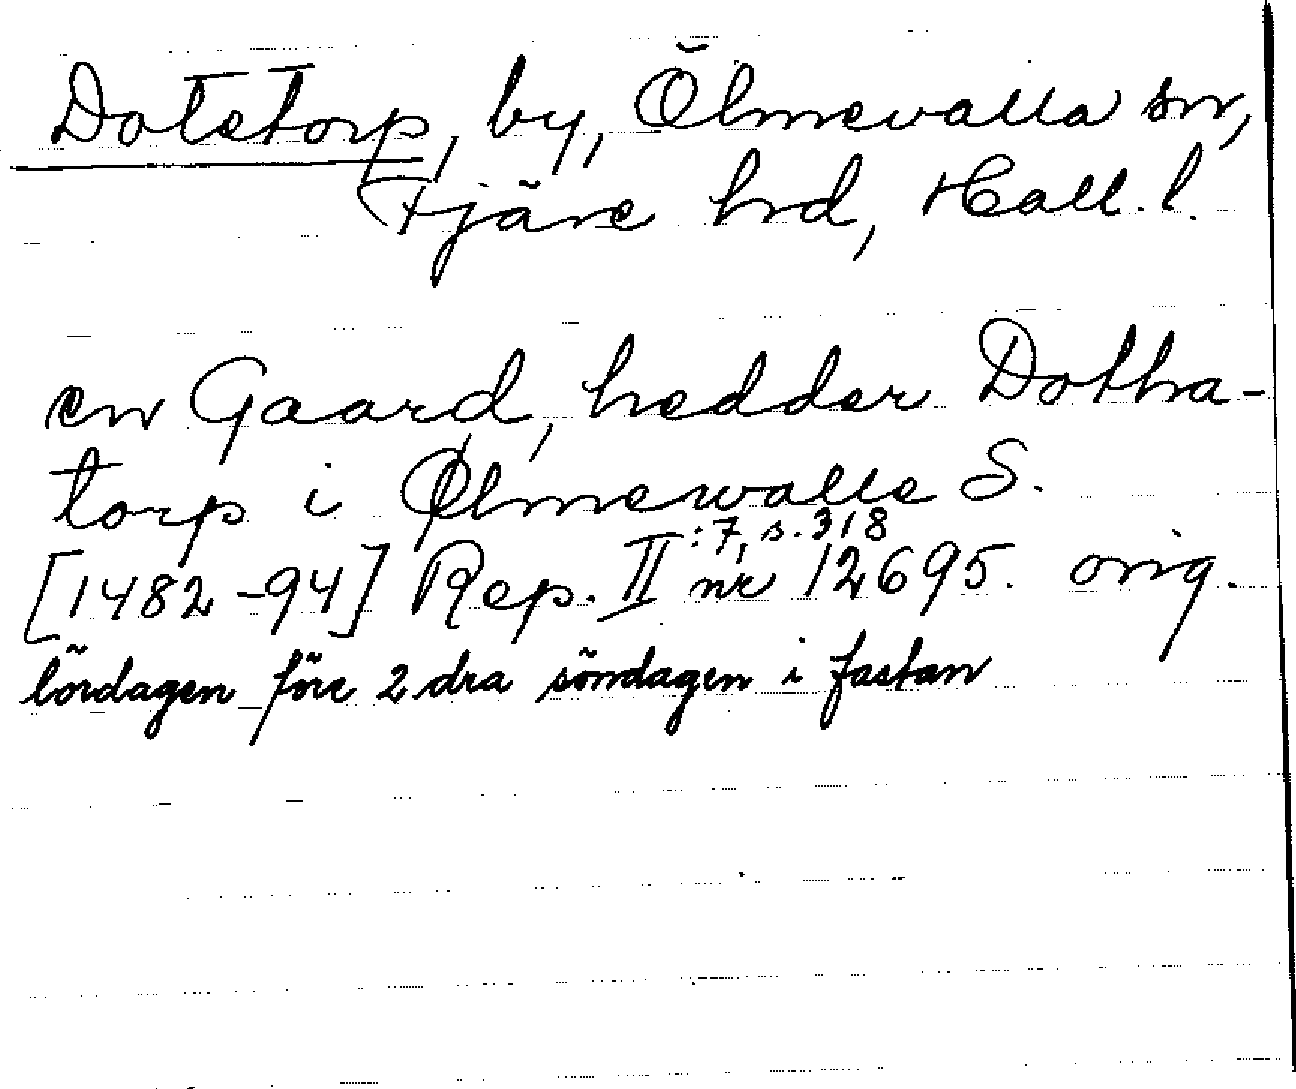 Dotetorp, by, Ölmevalla sn,
Fjäre hrd, Hall. l.
en Gaard, hedder Dotha-
torp i Ølmewalle S.
[1482-94] Rep. II :7, s. 318 nr 12695. orig.
lördagen före 2 dra söndagen i fastan